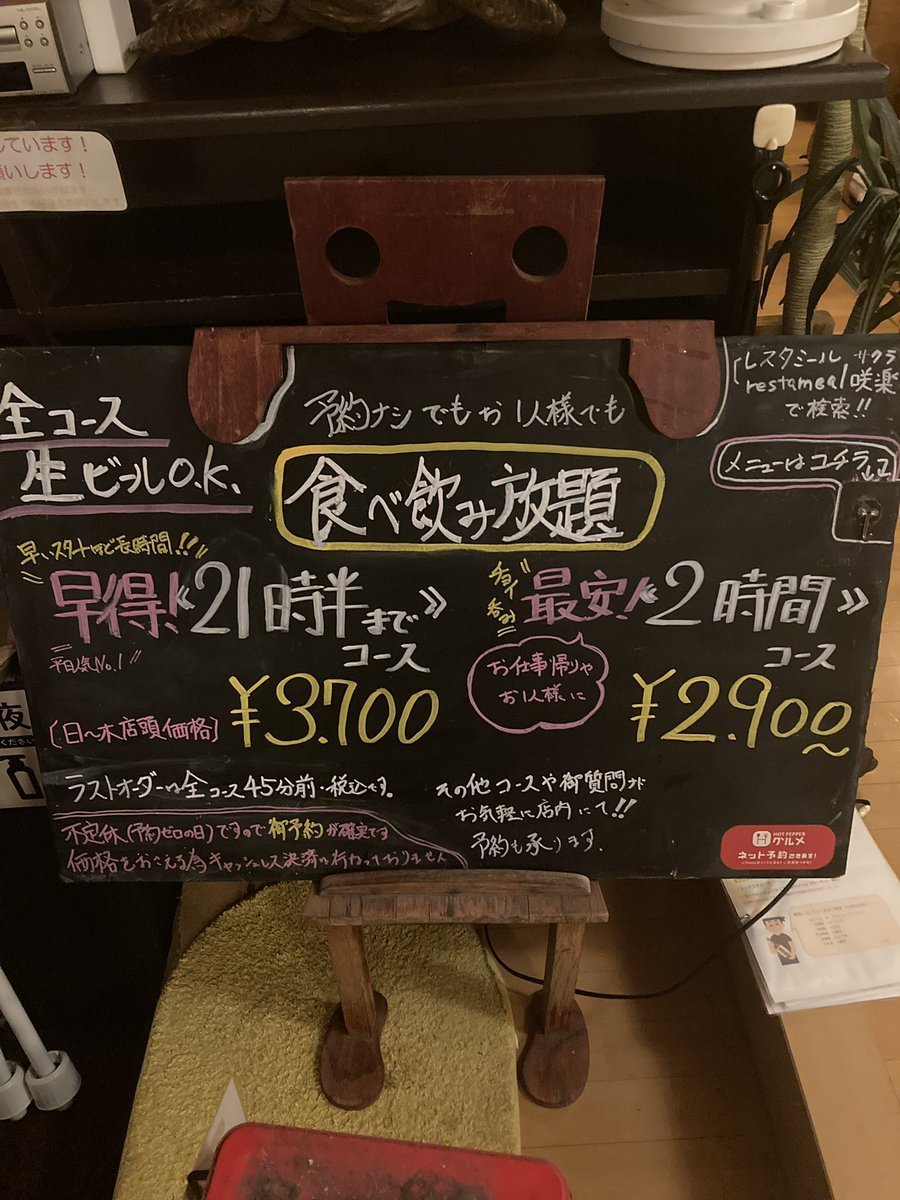 しています！
願いします！
全コース
生ビールo.k.
予約ナシでもお1人様でも
食べ飲み放題
レスタミール サクラ
restameal 咲楽
で検索!!
メニューはコチラ
早いスタートほど長時間!!
早得!《21時半まで》
コース
平日人気No.1
[日〜木店頭価格] ¥3.700
チョイ呑み
最安!《2時間》
コース
お仕事帰りや
お1人様に
¥2.900〜
ラストオーダーは全コース45分前・税込です。
不定休(予約ゼロの日)ですので御予約が確実です
価格をおさえる為キャッシュレス決済は行なっておりません
その他コースや御質問等
お気軽に店内にて!!
予約も承ります
HOT PEPPER
グルメ
ネット予約できます!
夜
ください